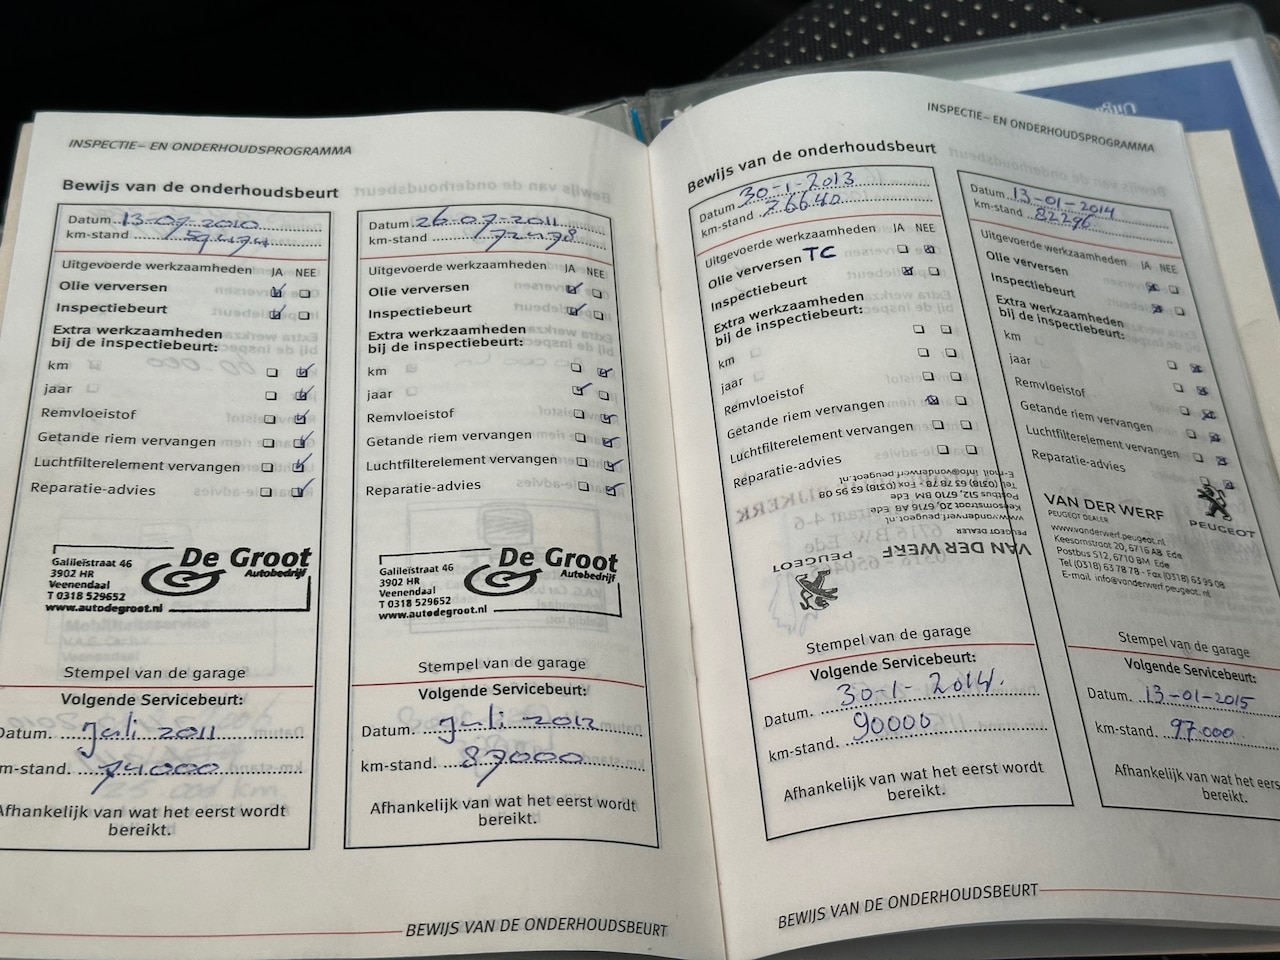 INSPECTIE- EN ONDERHOUDSPROGRAMMA
Bewijs van de onderhoudsbeurt
Datum 13-07-2010
km-stand 59474
Uitgevoerde werkzaamheden JA NEE
Olie verversen
Inspectiebeurt
Extra werkzaamheden
bij de inspectiebeurt:
km
jaar
Remvloeistof
Getande riem vervangen
Luchtfilterelement vervangen
Reparatie-advies
Galileïstraat 46
3902 HR
Veenendaal
T 0318 529652
www.autodegroot.nl
De Groot
Autobedrijf
Stempel van de garage
Volgende Servicebeurt:
Datum. Juli 2011
km-stand. 74000
Afhankelijk van wat het eerst wordt
bereikt.
Datum 26-07-2011
km-stand 72478
Uitgevoerde werkzaamheden JA NEE
Olie verversen
Inspectiebeurt
Extra werkzaamheden
bij de inspectiebeurt:
km
jaar
Remvloeistof
Getande riem vervangen
Luchtfilterelement vervangen
Reparatie-advies
Galileïstraat 46
3902 HR
Veenendaal
T 0318 529652
www.autodegroot.nl
De Groot
Autobedrijf
Stempel van de garage
Volgende Servicebeurt:
Datum. Juli 2012
km-stand. 87000
Afhankelijk van wat het eerst wordt
bereikt.
BEWIJS VAN DE ONDERHOUDSBEURT
INSPECTIE- EN ONDERHOUDSPROGRAMMA
Bewijs van de onderhoudsbeurt
Datum 30-1-2013
km-stand 76640
Uitgevoerde werkzaamheden JA NEE
Olie verversen TC
Inspectiebeurt
Extra werkzaamheden
bij de inspectiebeurt:
km
jaar
Remvloeistof
Getande riem vervangen
Luchtfilterelement vervangen
Reparatie-advies
VAN DER WERF
PEUGEOT DEALER
www.vanderwerf.peugeot.nl
Keesomstraat 20, 6716 AB Ede
Postbus 512, 6710 BM Ede
Tel. (0318) 63 78 78 - Fax (0318) 63 95 08
E-mail info@vanderwerf.peugeot.nl
PEUGEOT
Stempel van de garage
Volgende Servicebeurt:
Datum. 30-1-2014.
km-stand. 90000
Afhankelijk van wat het eerst wordt
bereikt.
Datum 13-01-2014
km-stand 82296
Uitgevoerde werkzaamheden JA NEE
Olie verversen
Inspectiebeurt
Extra werkzaamheden
bij de inspectiebeurt:
km
jaar
Remvloeistof
Getande riem vervangen
Luchtfilterelement vervangen
Reparatie-advies
VAN DER WERF
PEUGEOT DEALER
www.vanderwerf.peugeot.nl
Keesomstraat 20, 6716 AB Ede
Postbus 512, 6710 BM Ede
Tel (0318) 63 78 78 - Fax (0318) 63 95 08
E-mail info@vanderwerf.peugeot.nl
PEUGEOT
Stempel van de garage
Volgende Servicebeurt:
Datum. 13-01-2015
km-stand. 97.000
Afhankelijk van wat het eers
bereikt.
BEWIJS VAN DE ONDERHOUDSBEURT